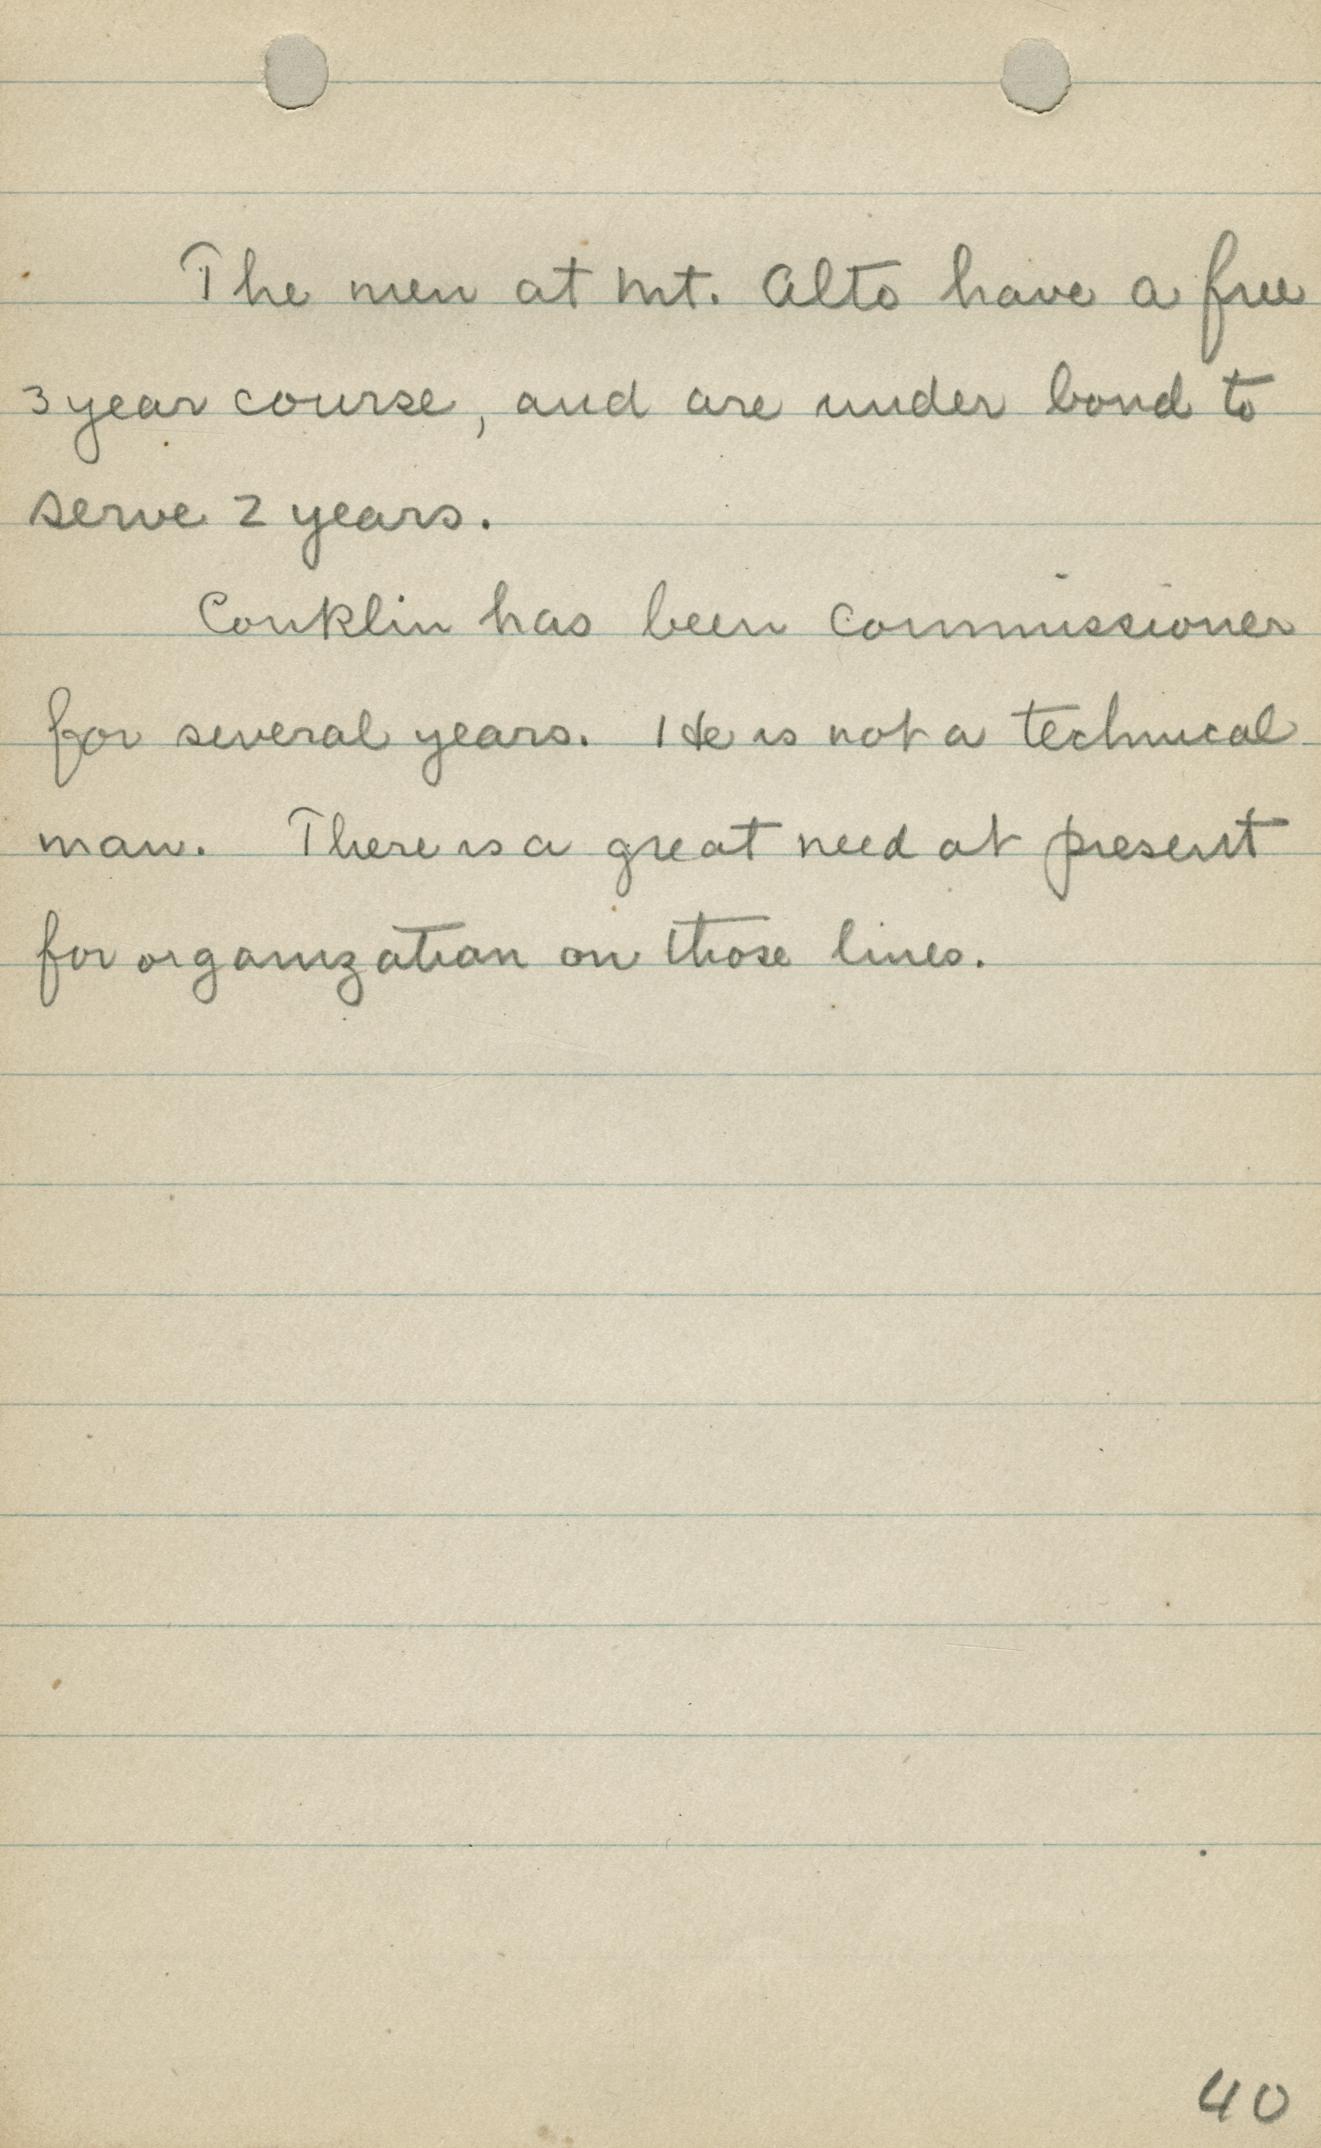 The men at Mt. Alto have a free
3 year course, and are under bond to
serve 2 years.
Conklin has been commissioner
for several years. He is not a technical
man. There is a great need at present
for organization on those lines.
40